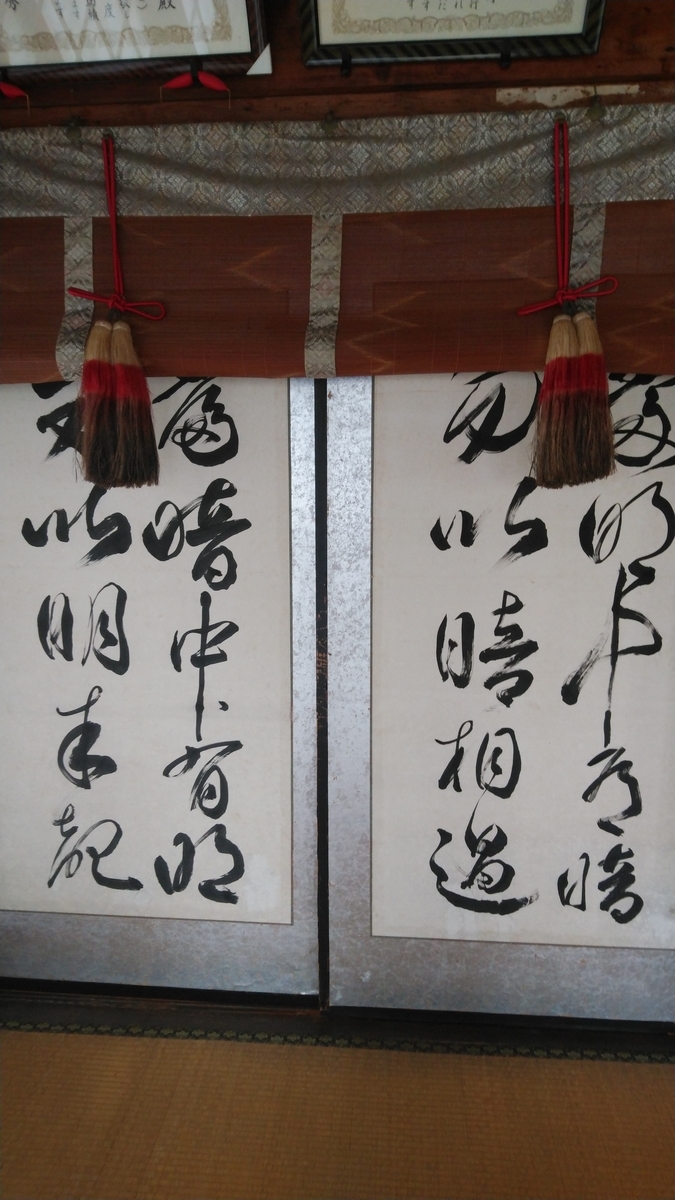 殿
當明中有暗
勿以暗相遇
當暗中有明
勿以明相覩